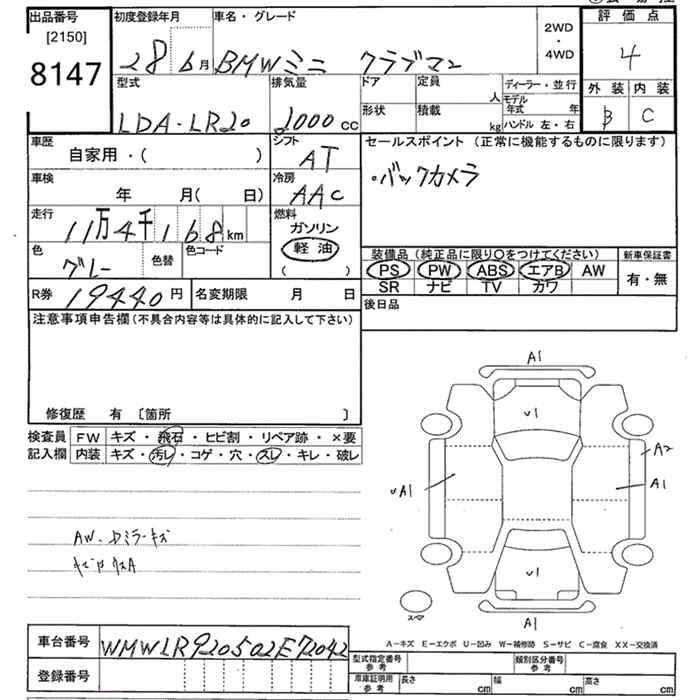 出品番号 初度登録年月 車名・グレード 2WD・4WD 評価点
[2150]
8147 28 6月 BMWミニ クラブマン 4
型式 排気量 ドア 定員 人 ディーラー・並行 外装 内装
モデル年式 年
LDA-LR20 2000cc 形状 積載 kg ハンドル 左・右 B C
車歴 自家用・( ) シフト AT セールスポイント (正常に機能するものに限ります)
車検 年 月( 日) 冷房 AAC ・バックカメラ
走行 11万4千168km 燃料 ガソリン 軽油 ( )
色 グレー 色替 色コード 装備品(純正品に限り○をつけてください) 新車保証書
PS PW ABS エアB AW 有・無
SR ナビ TV カワ
R券 19440円 名変期限 月 日 後日品
注意事項申告欄(不具合内容等は具体的に記入して下さい)
修復歴 有 [箇所 ]
検査員 FW キズ・飛石・ヒビ割・リペア跡・×要
記入欄 内装 キズ・汚レ・コゲ・穴・スレ・キレ・破レ
A1
U1
A2
UA1 A1
U1
スレ
A1
AW.ドミラーキズ
A-キズ E-エクボ U-凹み W-補修跡 S-サビ C-腐食 XX-交換済
車台番号 WMWLR920502E72042
登録番号
型式指定番号 参考 類別区分番号 参考
車庫証明用 参考 長さ cm 幅 cm 高さ cm